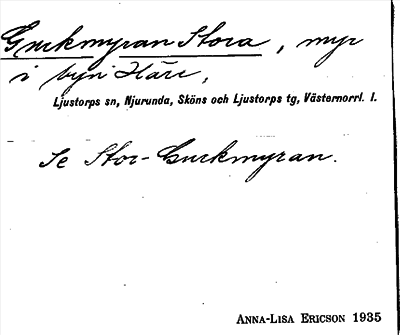 Gurkmyran Stora, myr
i byn Häre,
Ljustorps sn, Njurunda, Sköns och Ljustorps tg, Västernorrl. l.
Se Stor-Gurkmyran.
ANNA-LISA ERICSON 1935